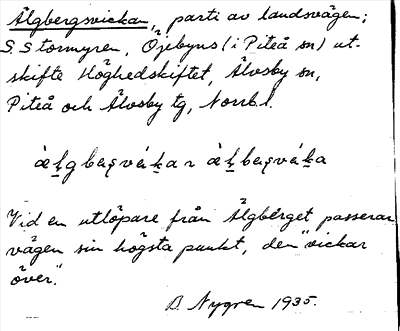 Älgbergsvickan, parti av landsvägen;
S. Stormyren, Öjebyns (i Piteå sn) ut-
skifte Höghedskiftet, Älvsby sn,
Piteå och Älvsby tg, Norrb. l.
Vid en utlöpare från Älgberget passerar
vägen sin högsta punkt, den "vickar
över".
B. Nygren 1935.